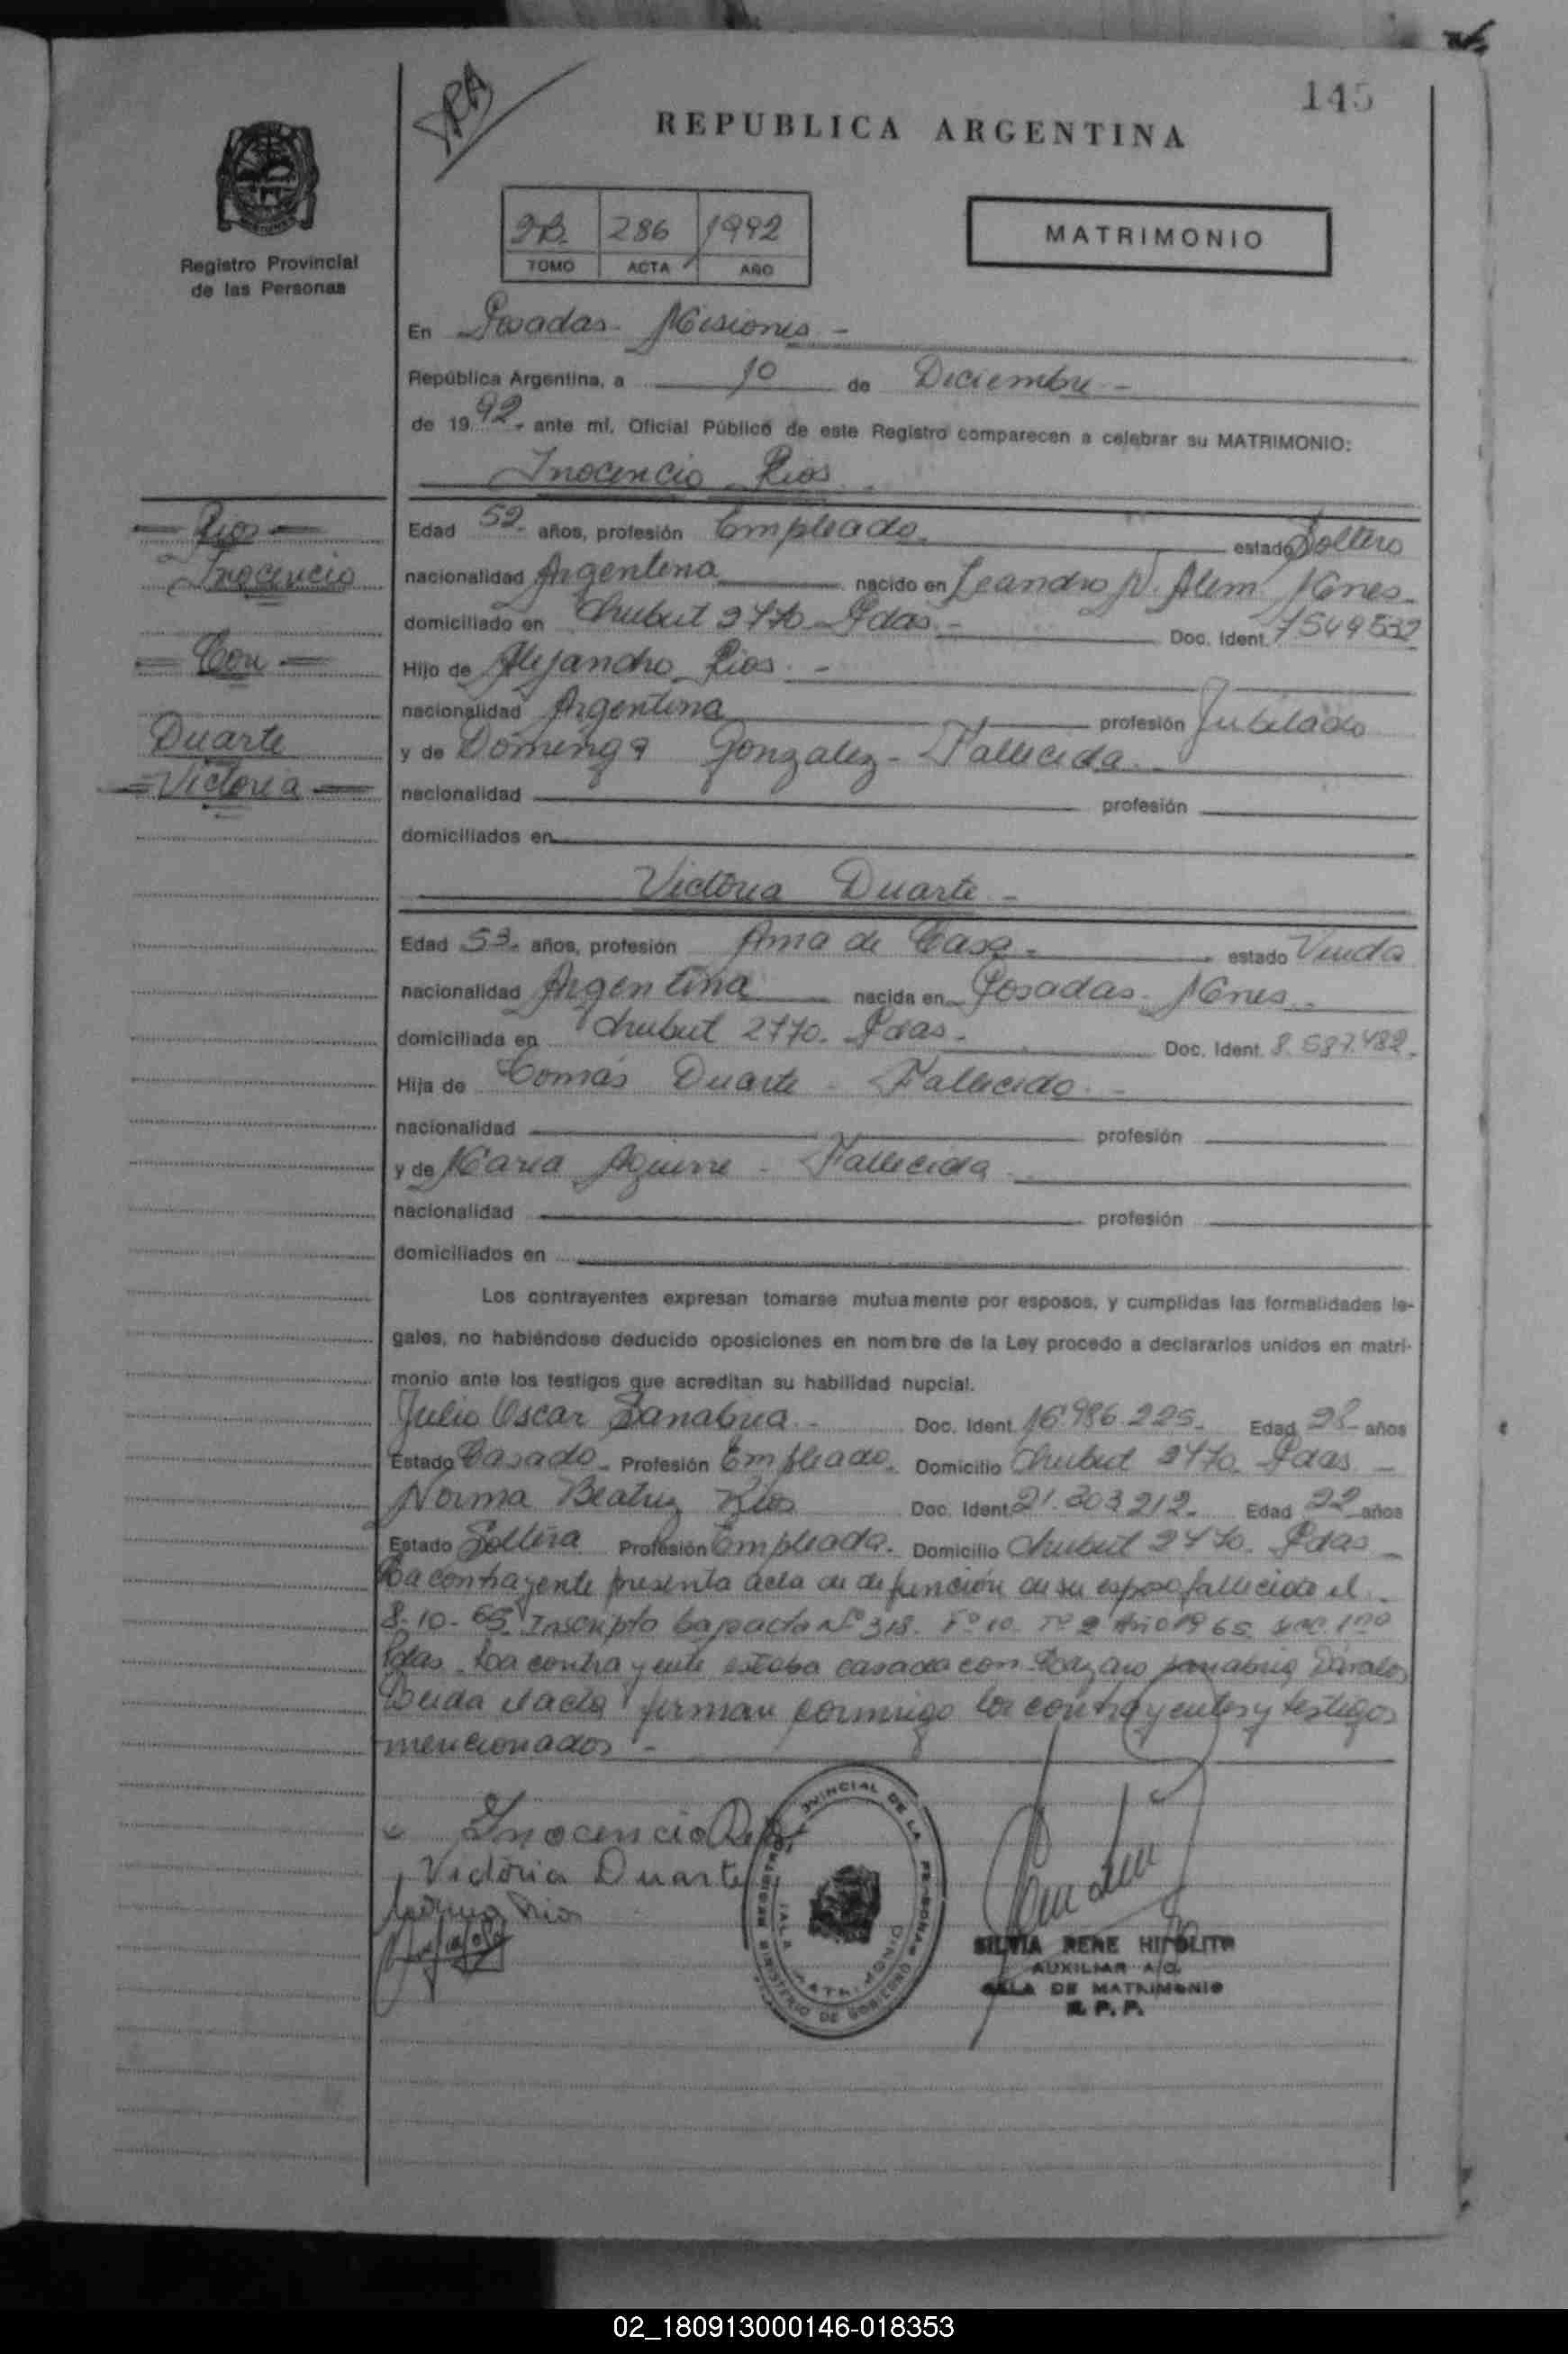 145
REPUBLICA ARGENTINA
2B. 286 1992
TOMO ACTA AÑO
MATRIMONIO
Registro Provincial
de las Personas
En Posadas - Misiones -
República Argentina, a 10 de Diciembre -
de 1992. ante mí, Oficial Público de este Registro comparecen a celebrar su MATRIMONIO:
Inocencio Rios
Rios
Inocencio
Con
Duarte
Victoria
Edad 52 años, profesión Empleado. estado Soltero
nacionalidad Argentina nacido en Leandro N. Alem Mnes.
domiciliado en Chubut 2770 Pdas. - Doc. Ident. 7549532
Hijo de Alejandro Rios -
nacionalidad Argentina profesión Jubilado
y de Dominga Gonzalez - Fallecida.
nacionalidad profesión
domiciliados en
Victoria Duarte -
Edad 53 años, profesión Ama de Casa - estado Viuda
nacionalidad Argentina nacida en Posadas - Mnes.
domiciliada en Chubut 2770. Pdas. - Doc. Ident. 8.587.482.
Hija de Tomás Duarte - Fallecido. -
nacionalidad profesión
y de Maria Aguirre - Fallecida
nacionalidad profesión
domiciliados en
Los contrayentes expresan tomarse mutuamente por esposos, y cumplidas las formalidades le-
gales, no habiéndose deducido oposiciones en nombre de la Ley procedo a declararlos unidos en matri-
monio ante los testigos que acreditan su habilidad nupcial.
Julio Oscar Sanabria - Doc. Ident. 16.986.225. Edad 28 años
Estado Casado - Profesión Empleado. Domicilio Chubut 2770. Pdas -
Norma Beatriz Rios Doc. Ident. 21.303.212. Edad 22 años
Estado Soltera Profesión Empleada. Domicilio Chubut 2770. Pdas -
La contrayente presenta acta de defunción de su esposo fallecido el
8-10-65 Inscripto bajo acta Nº 318. Fº 10. Tº 2 Año 1965 Secc 1ra
Pdas. La contrayente estaba casada con Lazaro Sanabria Davalos
Leida el acta firman conmigo los contrayentes y testigos
mencionados -
Inocencio Rios
Victoria Duarte
Norma Rios
REGISTRO PROVINCIAL DE LAS PERSONAS
MINISTERIO DE GOBIERNO
SALA MATRIMONIO
SILVIA RENE HIPOLITO
AUXILIAR A/C.
SALA DE MATRIMONIO
R. P. P.
02_180913000146-018353